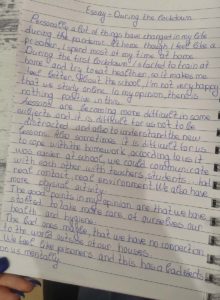 Essay - During the lockdown
Personally a lot of things have changed in my life
during the pandemic. At home though I feel like a
prisoner, I spend most of my time at home
During the first lockdown I started to train at
home and also to eat healthier, so it makes me
feel better. About the school, I'm not very happy
that we study online. In my opinion, there is
nothing positive in this.
lessons are becoming more difficult in some
subjects and it is difficult for us not to be
distracted and also to understand the new
lessons. Also sometimes it is difficult for us
to cope with the homework. According to us it
was easier at school, we could communicate
with each other with teachers, students
real contact, real environment. We also have
more physical activity.
The good points in my opinion are that we have
started to take more care of ourselves, our
health and hygiene.
The bad ones maybe that we have no connection
to the world outside of our houses.
We feel like prisoners and this has a bad effect
on us mentally.